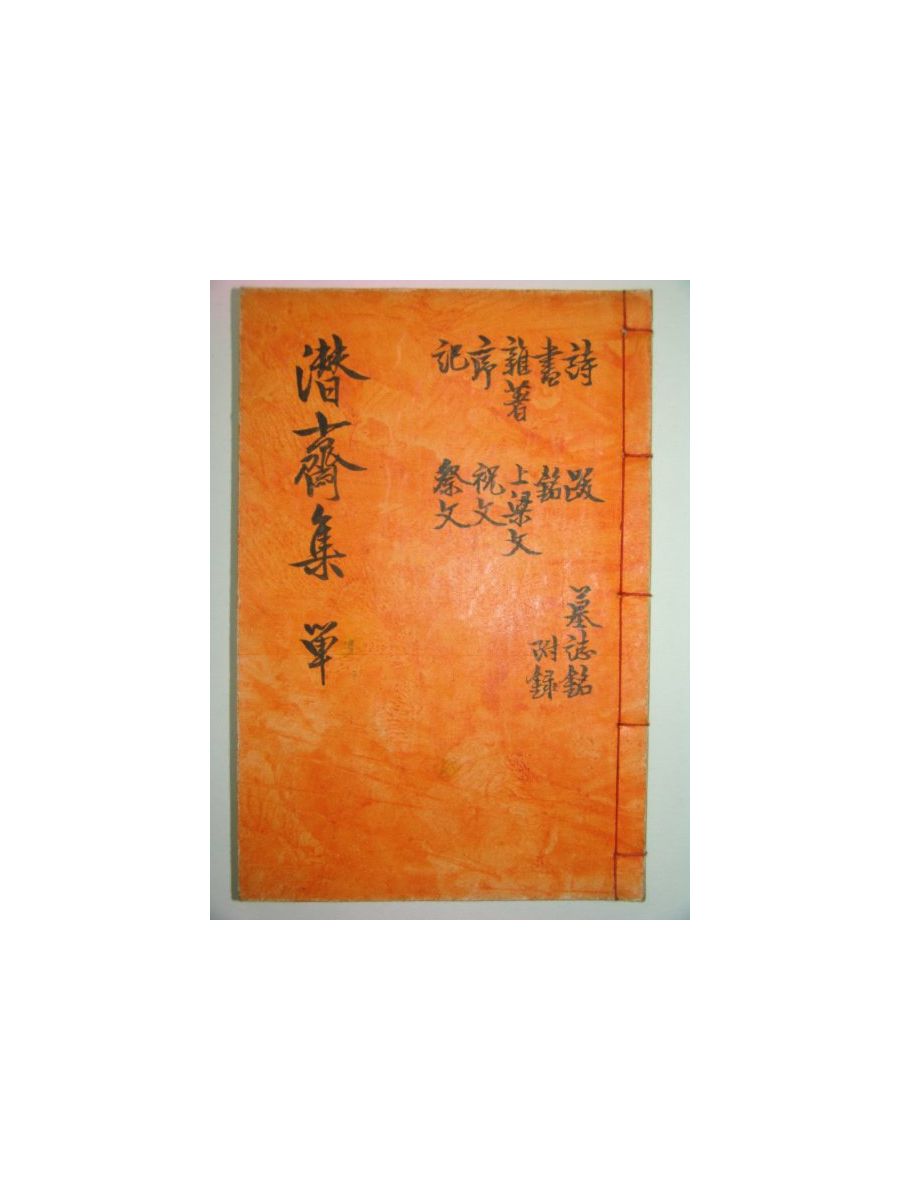 詩
書
雜著
序
記
跋
銘
上梁文
祝文
祭文
墓誌銘
附録
潛齋集 単